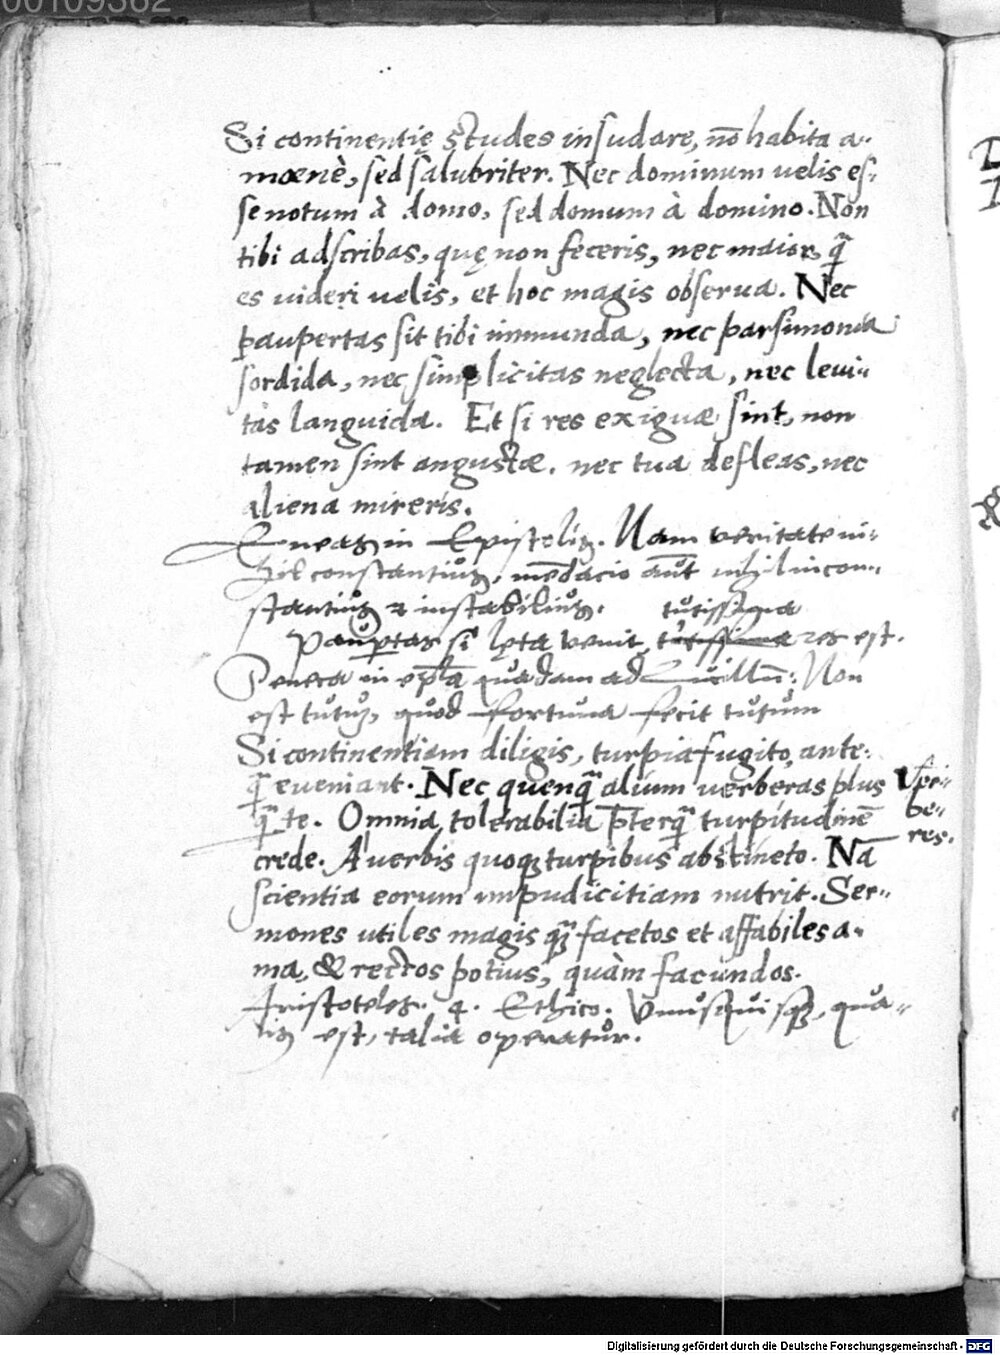 00109362
Si continentię studes insudare, nō habita a-
mœnè, sed salubriter. Nec dominum uelis es-
se notum à domo, sed domum à domino. Non
tibi adscribas, quę non feceris, nec maior, q̃
es uideri uelis, et hoc magis obserua. Nec
paupertas sit tibi immunda, nec parsimonia
sordida, nec simplicitas neglecta, nec leui-
tas languida. Et si res exiguæ sint, non
tamen sint angustæ. nec tua defleas, nec
aliena mireris.
Eneas in Epistolis. Nam veritate ni-
hil constantius, mēdacio aūt nihil incon-
stantius & instabilius.
tutissima
Paup̱tas si lęta venit, res est.
Seneca in epl̃a quadam ad Lucillū: Non
est tutus, quod fortuna fecit tutum
Si continentiam diligis, turpia fugito, ante-
q̃ eueniant. Nec quenq̃ alium uerberas plus
q̃ te. Omnia tolerabilia p̄terq̃ turpitudinē
crede. A uerbis quoq; turpibus abstineto. Nā
scientia eorum impudicitiam nutrit. Ser-
mones utiles magis q̃ facetos et affabiles a-
ma, & rectos potius, quàm facundos.
Aristoteles. 4. Ethico. Vnusquisq;, qua-
lis est, talia operatur.
Ver-
be-
res.
Digitalisierung gefördert durch die Deutsche Forschungsgemeinschaft - DFG